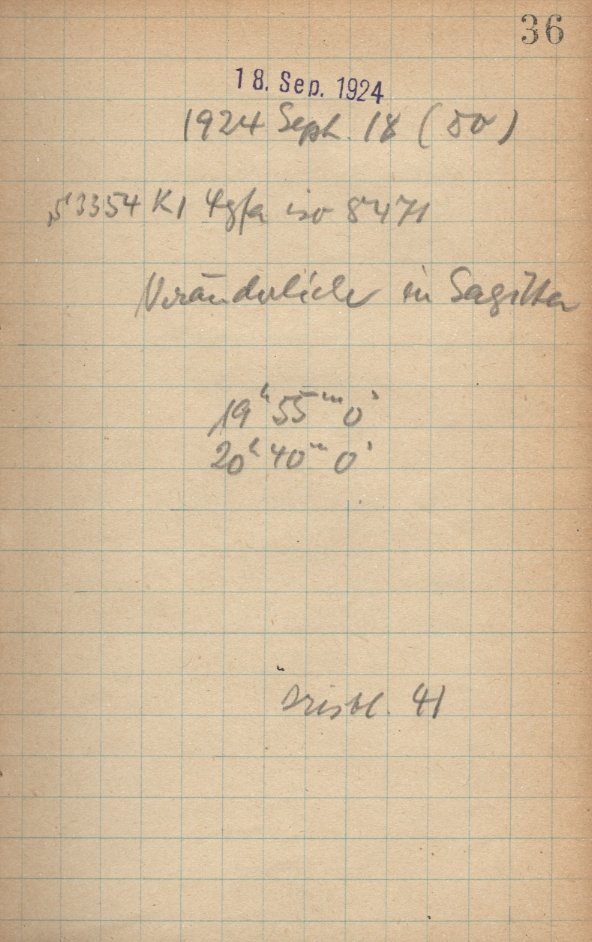 36
18. Sep. 1924
1924 Sept. 18 (50)
3354 K1 Agfa iso 8471
Veränderliche in Sagitta
19ʰ 55ᵐ 0ˢ
20ʰ 40ᵐ 0ˢ
41